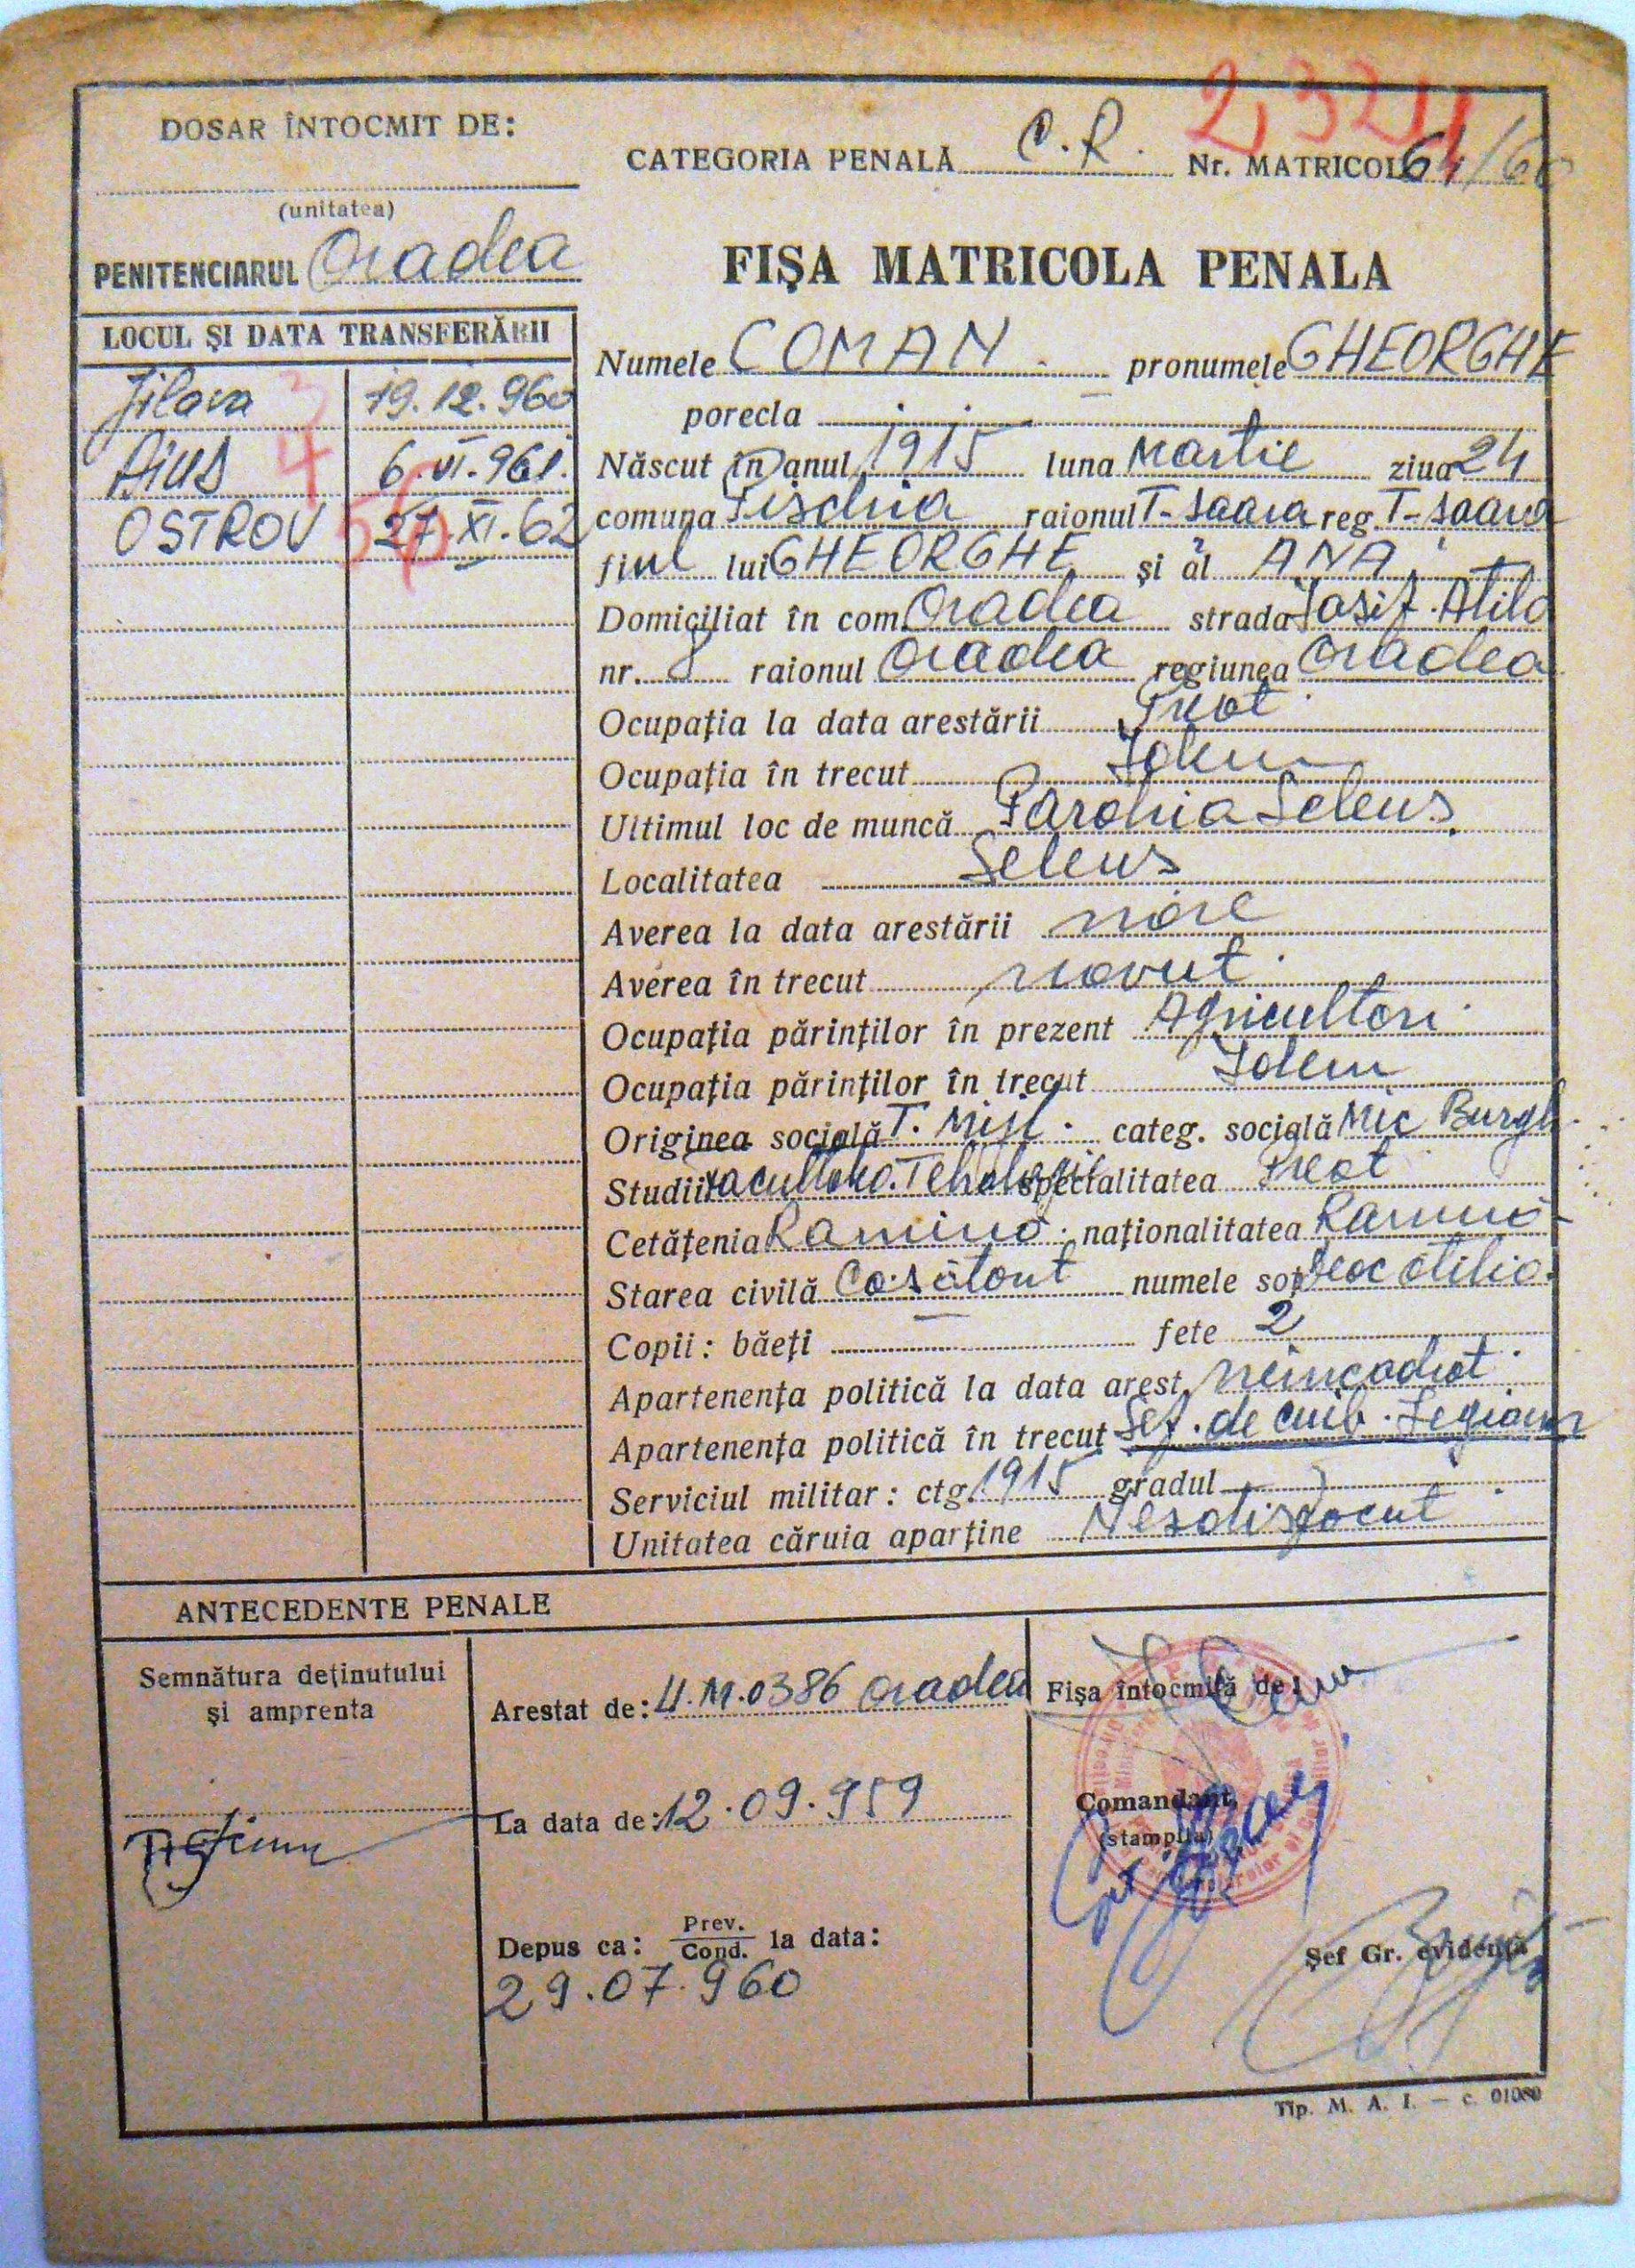 DOSAR ÎNTOCMIT DE:
(unitatea)
PENITENCIARUL Oradea
LOCUL ŞI DATA TRANSFERĂRII
Jilava 3 19.12.960
Aiud 4 6.VI.961.
OSTROV 5 27.XI.62
2321
CATEGORIA PENALĂ C.R. Nr. MATRICOL 64/60
FIŞA MATRICOLA PENALA
Numele COMAN pronumele GHEORGHE
porecla
Născut în anul 1915 luna Martie ziua 24
comuna Fischia raionul T-şoara reg. T-şoara
fiul lui GHEORGHE şi al ANA
Domiciliat în com. Oradea strada Iosif Atila
nr. 8 raionul Oradea regiunea Oradea
Ocupaţia la data arestării Preot
Ocupaţia în trecut Idem
Ultimul loc de muncă Parohia Seleus
Localitatea Seleus
Averea la data arestării nare
Averea în trecut navut
Ocupaţia părinţilor în prezent Agricultori
Ocupaţia părinţilor în trecut Idem
Originea socială T. Mijl. categ. socială Mic Burgh
Studii specialitatea Preot
Cetăţenia Romină naţionalitatea Romină
Starea civilă Căsătorit numele soţ
Copii: băeţi fete 2
Apartenenţa politică la data arest. neincadrat
Apartenenţa politică în trecut Sef. de cuib. Legionar
Serviciul militar: ctg. 1915 gradul
Unitatea căruia aparţine Nesatisfacut
ANTECEDENTE PENALE
Semnătura deţinutului
şi amprenta
Arestat de: U.M.0386 Oradea
La data de: 12.09.959
Depus ca: Prev. / Cond. la data:
29.07.960
Fişa întocmită de:
Comandant,
(stampila)
Şef Gr. evidenţă
Tip. M. A. I. — c. 01080